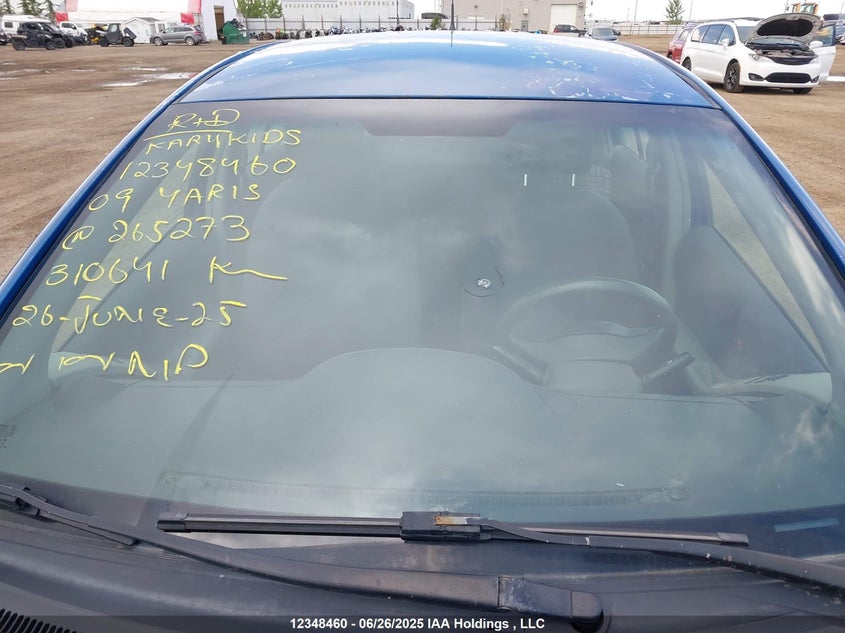 R+D
KARYKIDS
12348460
09 YARIS
@ 265273
310641 Km
26-JUNE-25
R/D
12348460 - 06/26/2025 IAA Holdings , LLC